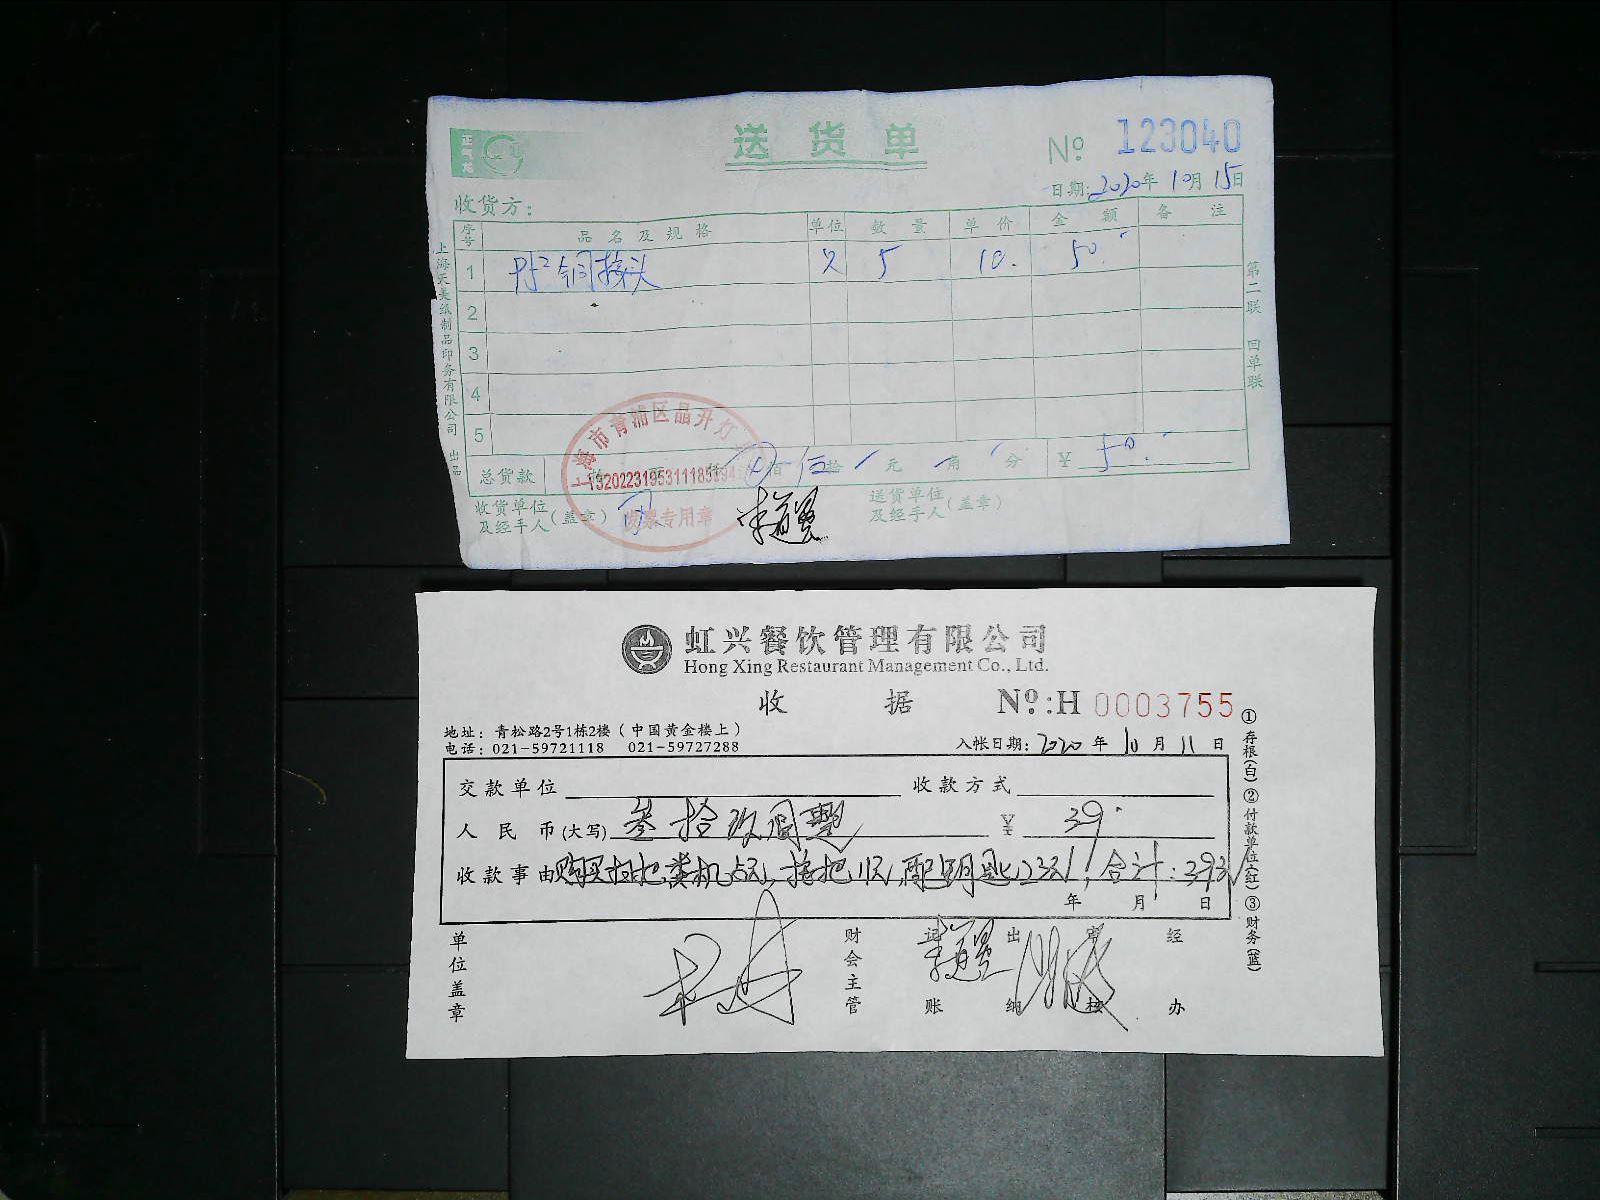 正气龙
送货单
№ 123040
日期:2020年10月15日
收货方:
序号 品名及规格 单位 数量 单价 金额 备注
1 铜接头 只 5 10. 50.
2
3
4
5
总货款 佰伍拾元角分 ¥50.
收货单位及经手人(盖章)
送货单位及经手人(盖章)
上海市青浦区晶升灯
发票专用章
上海天美纸制品印务有限公司 出品
第二联 回单联
虹兴餐饮管理有限公司
Hong Xing Restaurant Management Co., Ltd.
收据 №:H 0003755
地址:青松路2号1栋2楼(中国黄金楼上)
电话:021-59721118 021-59727288
入帐日期:2020年10月11日
交款单位 收款方式
人民币(大写) 叁拾玖圆整 ¥ 39.
收款事由 购买扫把, 配钥匙 23元, 合计:39元
年 月 日
单位盖章
财会主管
记账
出纳
审核
经办
①存根(白)②付款单位(红)③财务(蓝)